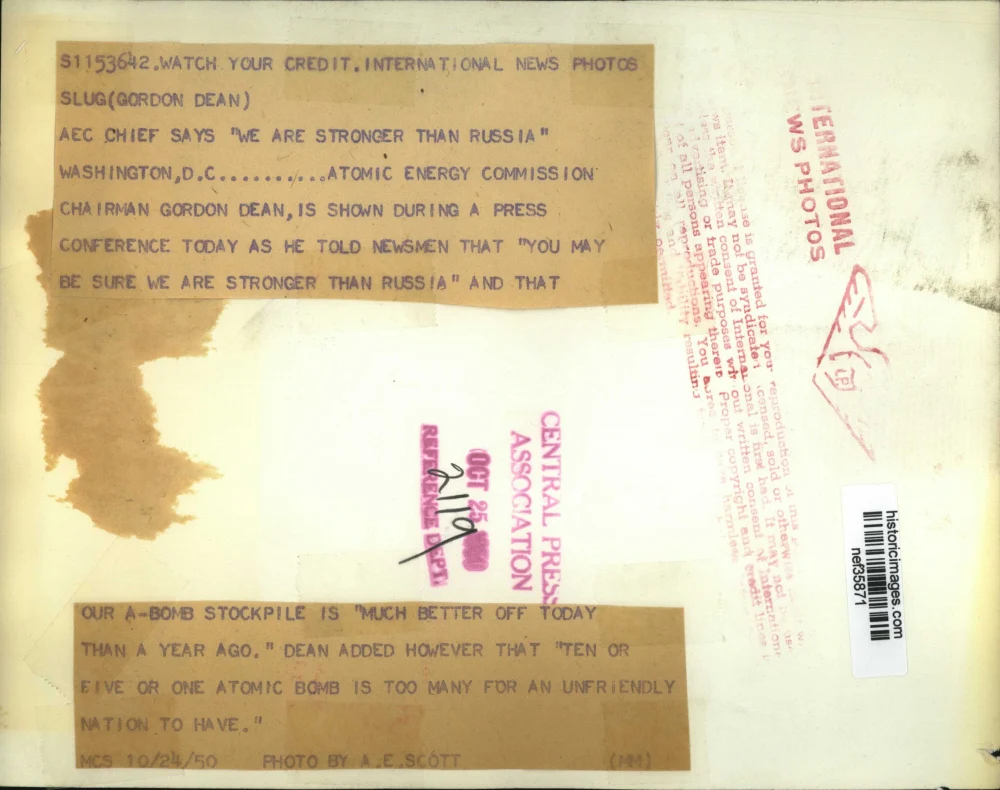 S1153642.WATCH YOUR CREDIT.INTERNATIONAL NEWS PHOTOS
SLUG(GORDON DEAN)
AEC CHIEF SAYS "WE ARE STRONGER THAN RUSSIA"
WASHINGTON,D.C..........ATOMIC ENERGY COMMISSION
CHAIRMAN GORDON DEAN,IS SHOWN DURING A PRESS
CONFERENCE TODAY AS HE TOLD NEWSMEN THAT "YOU MAY
BE SURE WE ARE STRONGER THAN RUSSIA" AND THAT
OUR A-BOMB STOCKPILE IS "MUCH BETTER OFF TODAY
THAN A YEAR AGO." DEAN ADDED HOWEVER THAT "TEN OR
FIVE OR ONE ATOMIC BOMB IS TOO MANY FOR AN UNFRIENDLY
NATION TO HAVE."
MCS 10/24/50 PHOTO BY A.E.SCOTT (MM)
CENTRAL PRESS
ASSOCIATION
OCT 25
2119
REFERENCE DEPT.
WS PHOTOS
is granted for your reproduction
may not be syndicated
consent of
is first had. It may not
or trade purposes written consent of
of all persons appearing therein Proper copyright and credit lines
reproductions. You
resulting
historicimages.com
nef35871